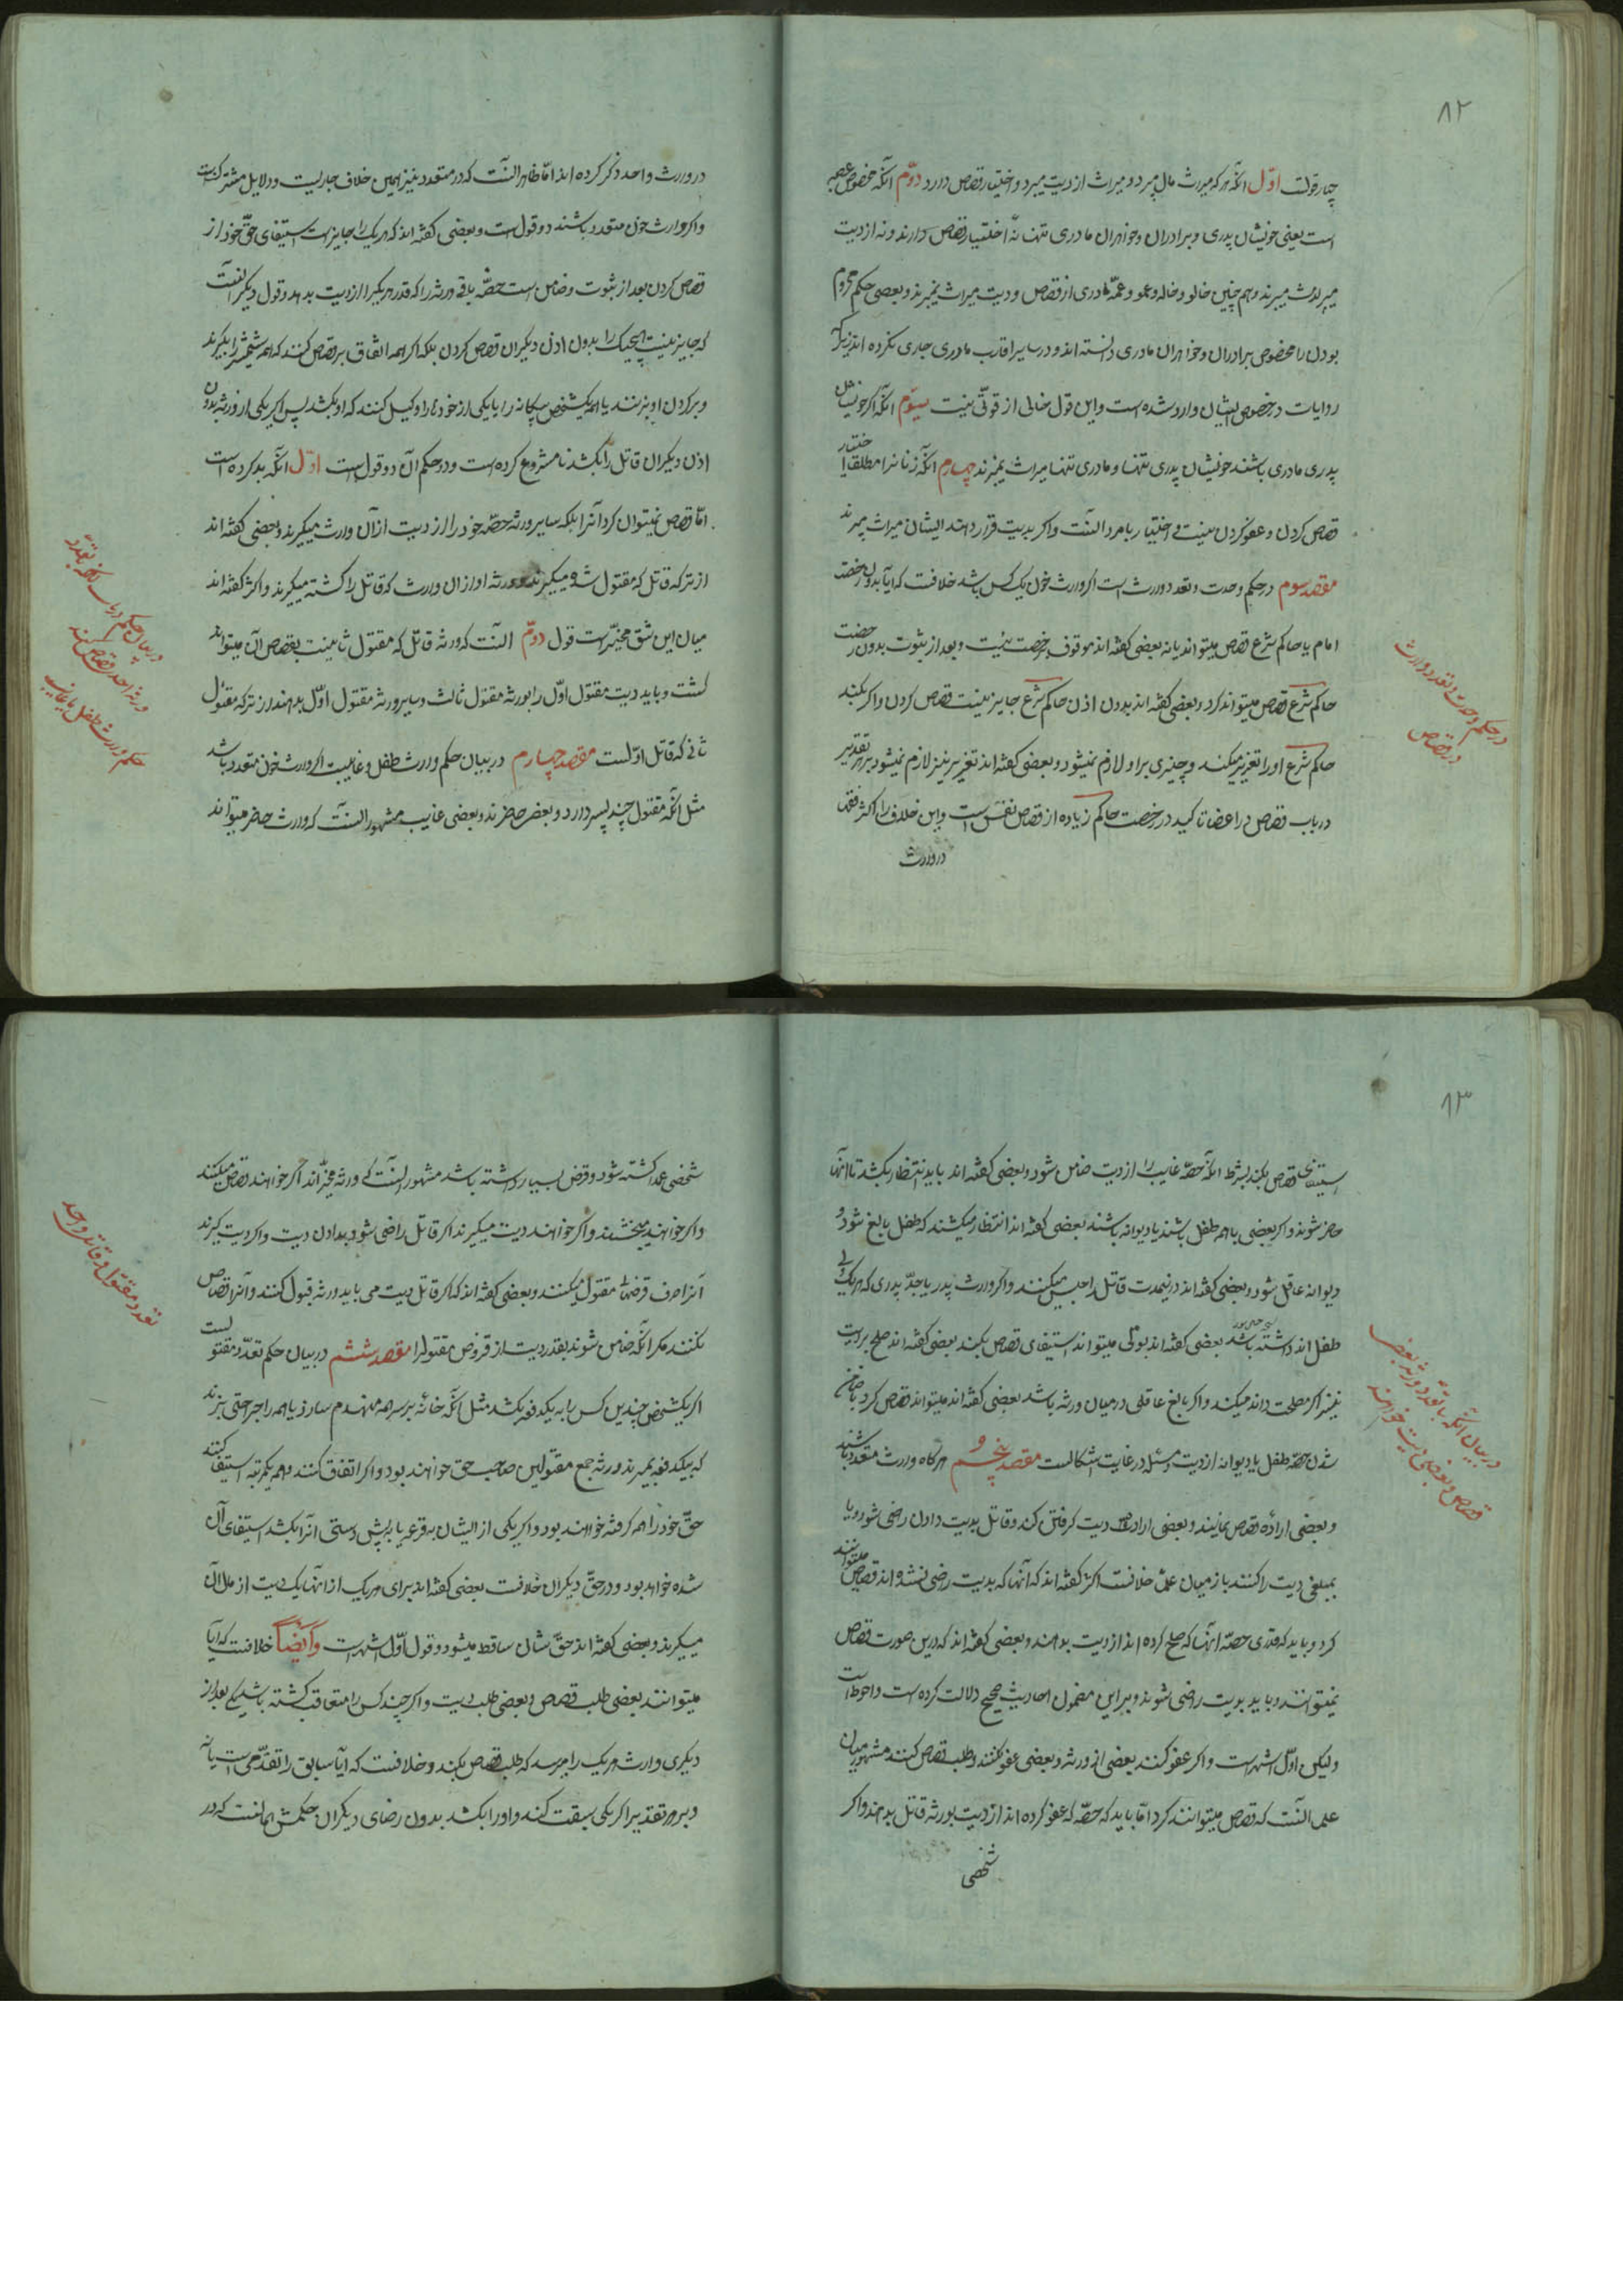 ۸۲
چهار قولت اوّل آنکه هر که میراث مال میبرد و میراث از دیت میبرد و اختیار قصاص دارد دوّم آنکه مخصوص عصبه
است یعنی خویشان پدری و برادران و خواهران مادری تنها نه اختیار قصاص دارند و نه از دیت
میراث میبرند و هم چنین خالو و خاله و عمو و عمّهٔ مادری از قصاص و دیت میراث نمیبرند و بعضی حکم محروم
بودن را مخصوص برادران و خواهران مادری دانسته اند و در سایر اقارب مادری جاری نکرده اند زیراکه
روایات در خصوص ایشان وارد شده است و این قول خالی از قوّتی نیست سیوم آنکه اگر خویشان
پدری مادری باشند خویشان پدری تنها و مادری تنها میراث نمیبرند چهارم آنکه زنانرا مطلقا اختیار
قصاص کردن و عفو کردن نیست و اختیار با مردانست و اگر بدیت قرار دهند ایشان میراث میبرند
مقصد سوم در حکم وحدت و تعدد وارث است اگر وارث خون یک کس باشد خلافت که آیا بدون رخصت
امام یا حاکم شرع قصاص میتواند یا نه بعضی گفته اند موقوف برخصت نیست و بعد از ثبوت بدون رخصت
حاکم شرع قصاص میتواند کرد و بعضی گفته اند بدون اذن حاکم شرع جایز نیست قصاص کردن و اگر بکند
حاکم شرع او را تعزیر میکند و چیزی بر او لازم نمیشود و بعضی گفته اند تعزیر نیز لازم نمیشود بر هر تقدیر
در باب قصاص در اعضا تاکید در رخصت حاکم زیاده از قصاص نفس است و این خلاف را اکثر فقها
در وارث
در حکم وحدت و تعدد وارث
در قصاص
در وارث واحد ذکر کرده اند امّا ظاهر آنست که در متعدد نیز همین خلاف جاریست و دلایل مشترکست
و اگر وارث خون متعدد باشند دو قول است و بعضی گفته اند که هر یک را جایز است استیفای حقّ خود از
قصاص کردن بعد از ثبوت و ضامن است حصّه باقی ورثه را که قدر هر یک را از دیت بدهد و قول دیگر آنست
که جایز نیست هیچیک را بدون اذن دیگران قصاص کردن بلکه اگر همه اتفاق بر قصاص کنند که همه شمشیر را بگیرند
و بر گردن او بزنند یا همه یکشخص بیگانه را یا یکی از خودها را وکیل کنند که او بکشد پس اگر یکی از ورثه بدون
اذن دیگران قاتل را بکشد نامشروع کرده است و در حکم آن دو قول است اوّل آنکه بد کرده است
امّا قصاص نمیتوان کرد آنرا بلکه سایر ورثه حصّه خود را از دیت از آن وارث میگیرند و بعضی گفته اند
از ترکه قاتل که مقتول شده میگیرند و ورثه او از آن وارث که قاتل را کشته میگیرند و اکثر گفته اند
میان این شق مخیّر است قول دوّم آنست که ورثه قاتل که مقتول ثانیست بقصاص آن میتواند
کشت و باید دیت مقتول اوّل را بورثه مقتول ثالث و سایر ورثه مقتول اوّل بدهند از ترکه مقتول
ثانی که قاتل اوّلست مقصد چهارم در بیان حکم وارث طفل و غایبست اگر وارث خون متعدد باشد
مثل آنکه مقتول چند پسر دارد و بعضی حاضرند و بعضی غایب مشهور آنست که وارث حاضر میتواند
در بیان حکم
ورثه احد قصاص کنند
حکم وارث طفل یا غایب
۸۳
استیفای قصاص بکند بشرط آنکه حصّه غایب را از دیت ضامن شود و بعضی گفته اند باید انتظار بکشد تا آنها
حاضر شوند و اگر بعضی یا همه طفل باشند یا دیوانه باشند بعضی گفته اند انتظار میکشند که طفل بالغ شود و
دیوانه عاقل شود و بعضی گفته اند در نیمدت قاتل را حبس میکنند و اگر وارث پدر یا جدّ پدری که هر یک ولی
طفل اند داشته باشد بعضی گفته اند ولی میتواند استیفای قصاص بکند بعضی گفته اند صلح بر دیت
نیز اگر مصلحت داند میکند و اگر بالغ عاقلی در میان ورثه باشد بعضی گفته اند میتواند قصاص کرد با ضامن
شدن حصّه طفل یا دیوانه از دیت و مسئله در غایت اشکالست مقصد پنجم هرگاه وارث متعدد باشند
و بعضی اراده قصاص نمایند و بعضی اراده دیت گرفتن کند و قاتل بدیت دادن راضی شود و یا
بمبلغی دیت را کنند باز میان علما خلافست اکثر گفته اند که آنها که بدیت راضی نشده اند قصاص میتوانند
کرد و باید که قدری حصّه آنها که صلح کرده اند از دیت بدهند و بعضی گفته اند که درین صورت قصاص
نمیتوانند و باید بدیت راضی شوند و بر این مضمون احادیث صحیح دلالت کرده است و احوط است
ولیکن اوّل اشهر است و اگر عفو کنند بعضی از ورثه و بعضی عفو نکنند و طلب قصاص کنند مشهور میان
علما آنست که قصاص میتوانند کرد امّا باید که حصّه که عفو کرده اند از دیت بورثه قاتل بدهند و اگر
شخصی
در بیان آنکه با تعدّد ورثه بعضی
قصاص و بعضی دیت خواهند
شخصی عمدا کشته شود و قرض بسیار داشته باشد مشهور آنست که ورثه مخیّرند اگر خواهند قصاص میکنند
و اگر خواهند میبخشند و اگر خواهند دیت میگیرند اگر قاتل راضی شود بدادن دیت و اگر دیت گیرند
آنرا صرف قرضهای مقتول میکنند و بعضی گفته اند که اگر قاتل دیت می باید ورثه قبول کنند و آنرا قصاص
نکنند مگر آنکه ضامن شوند بقدر دیت از قروض مقتول را مقصد ششم در بیان حکم تعدّد مقتولست
اگر یکشخص چندین کس را به یکدفعه بکشد مثل آنکه خانه بر سر همه منهدم سازد یا همه را جراحتی بزند
که بیکدفعه بمیرند ورثه جمیع مقتولین صاحب حق خواهند بود و اگر اتفاق کنند و همه یکمرتبه استیفا کنند
حقّ خود را همه گرفته خواهند بود و اگر یکی از ایشان به قرعه یا به پیش دستی آنرا بکشد استیفای آن
شده خواهد بود و در حقّ دیگران خلافست بعضی گفته اند برای هر یک از آنها یک دیت از مال آن
میگیرند و بعضی گفته اند حقّ شان ساقط میشود و قول اوّل اشهر است و ایضاً خلافست که آیا
میتوانند بعضی طلب قصاص و بعضی طلب دیت و اگر چند کس را متعاقب کشته باشد یکی بعد از
دیگری وارث هر یک را میرسد که طلب قصاص بکند و خلافست که آیا سابق را تقدّمی است یا نه
و بر هر تقدیر اگر یکی سبقت کند و او را بکشد بدون رضای دیگران حکمش همانست که در
تعدد مقتول و قاتل واحد